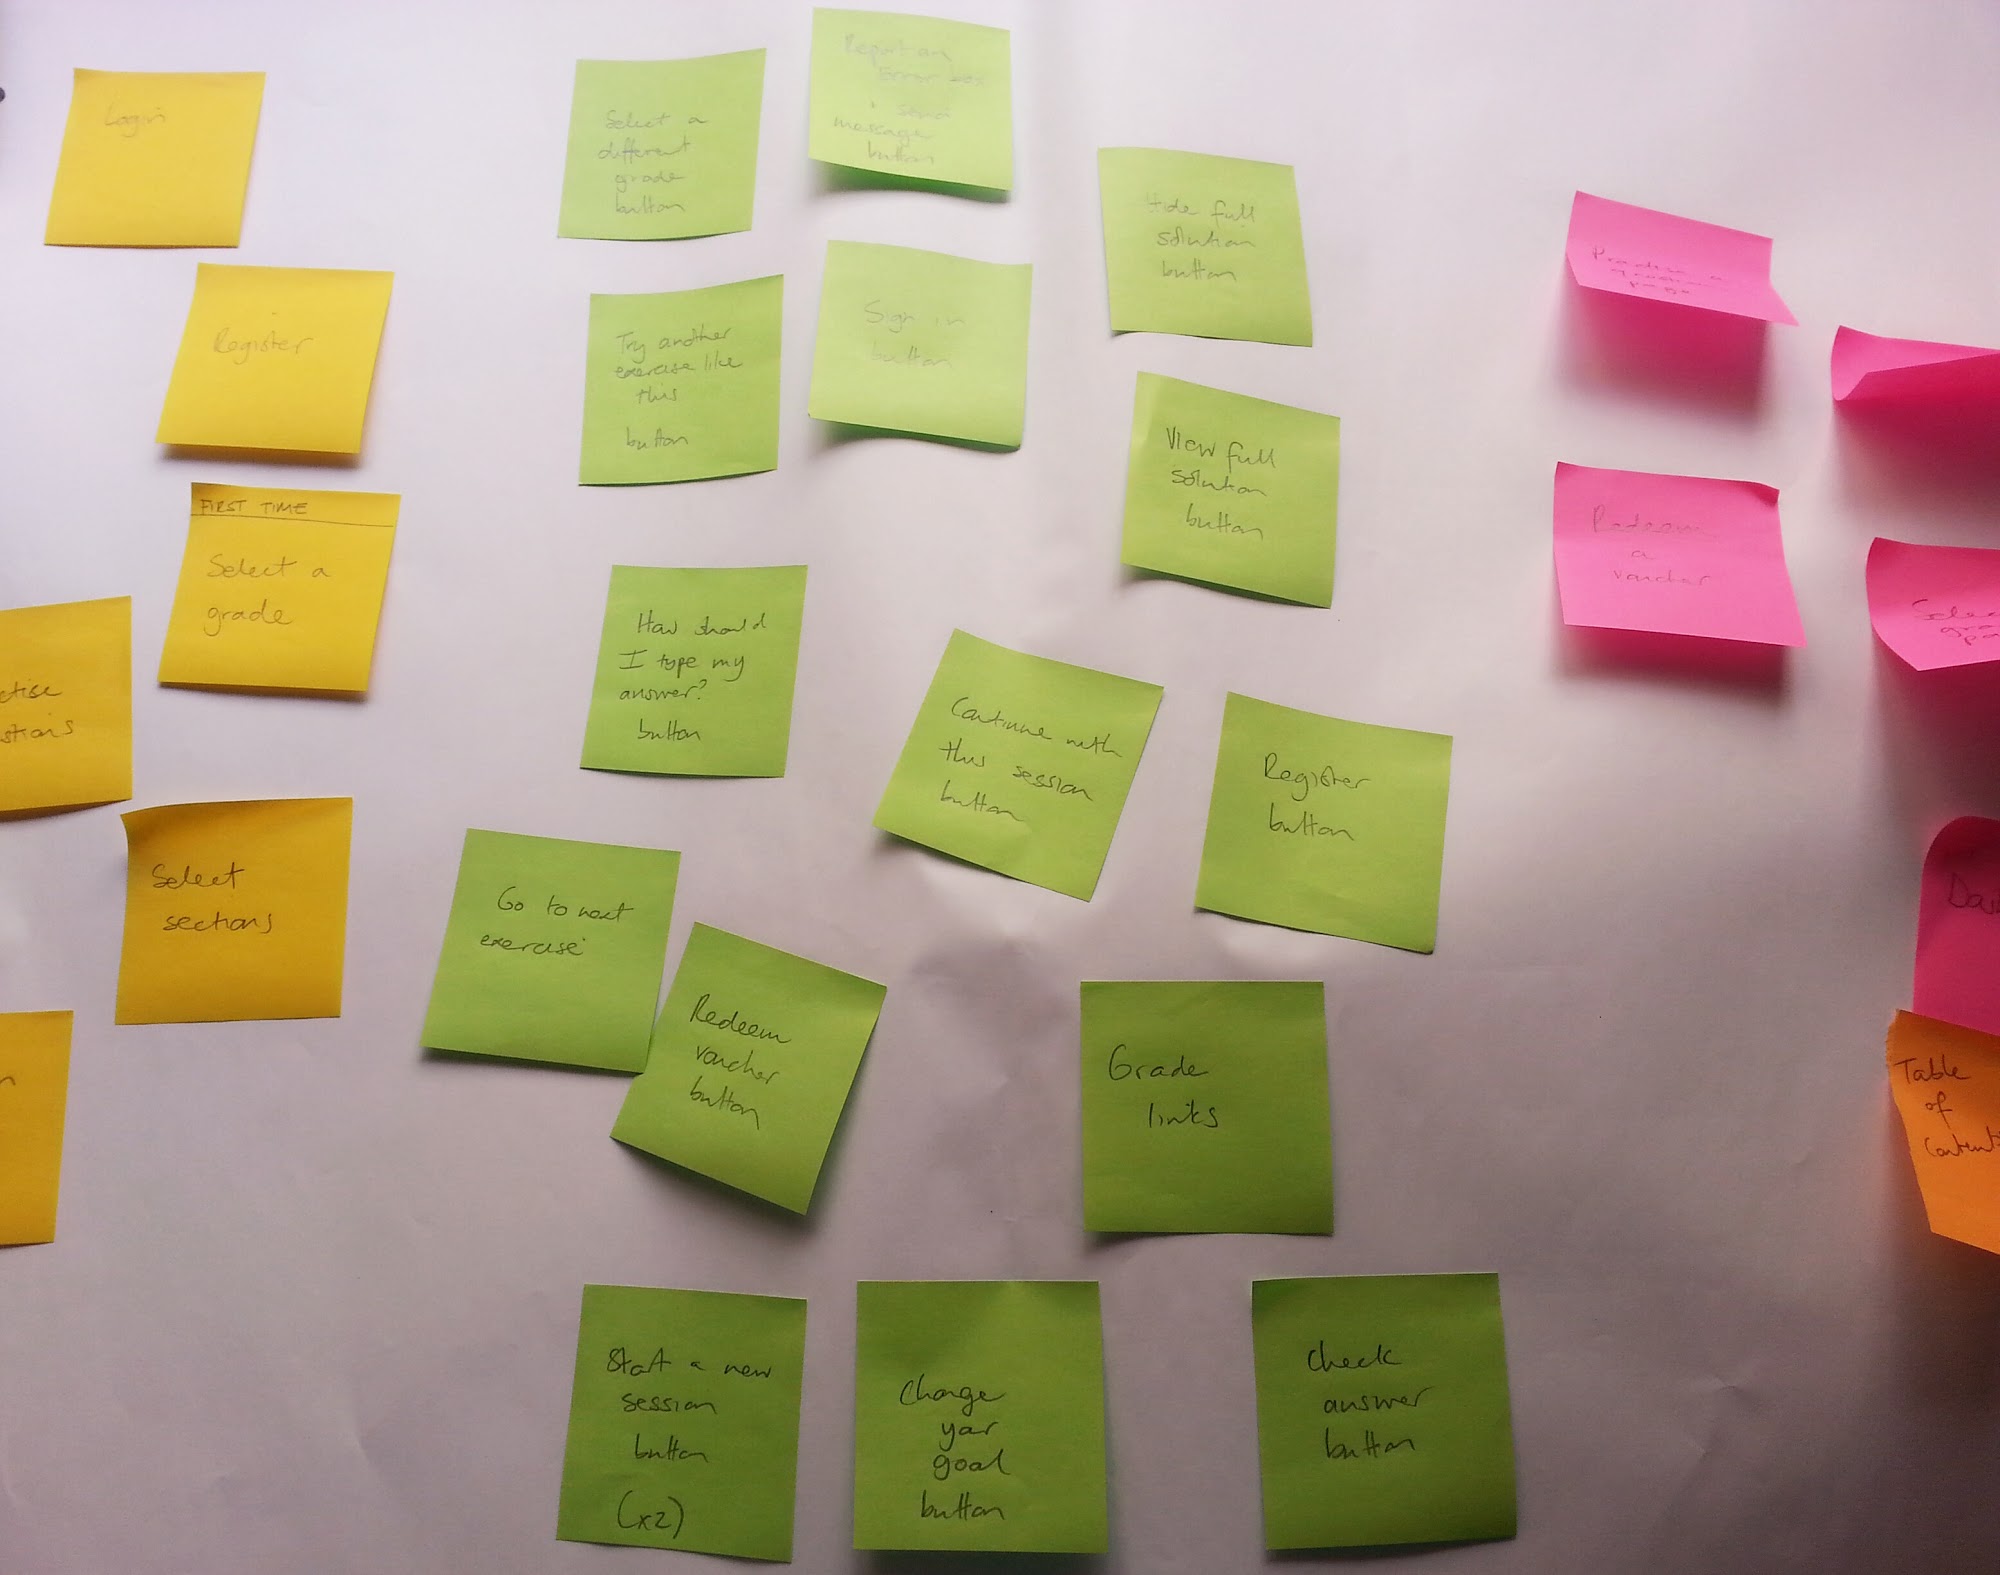 Login
Register
FIRST TIME
Select a
grade
ctise
stions
Select
sections
n
Select a
different
grade
button
Report an
Error box
send
message
button
Try another
exercise like
this
button
Sign in
button
Hide full
solution
button
View full
solution
button
How should
I type my
answer?
button
Continue with
this session
button
Register
button
Go to next
exercise
Redeem
voucher
button
Grade
links
Start a new
session
button
(x2)
Change
your
goal
button
Check
answer
button
Practise a
page
Redeem
a
voucher
Selec
gra
pa
Das
Table
of
Contents